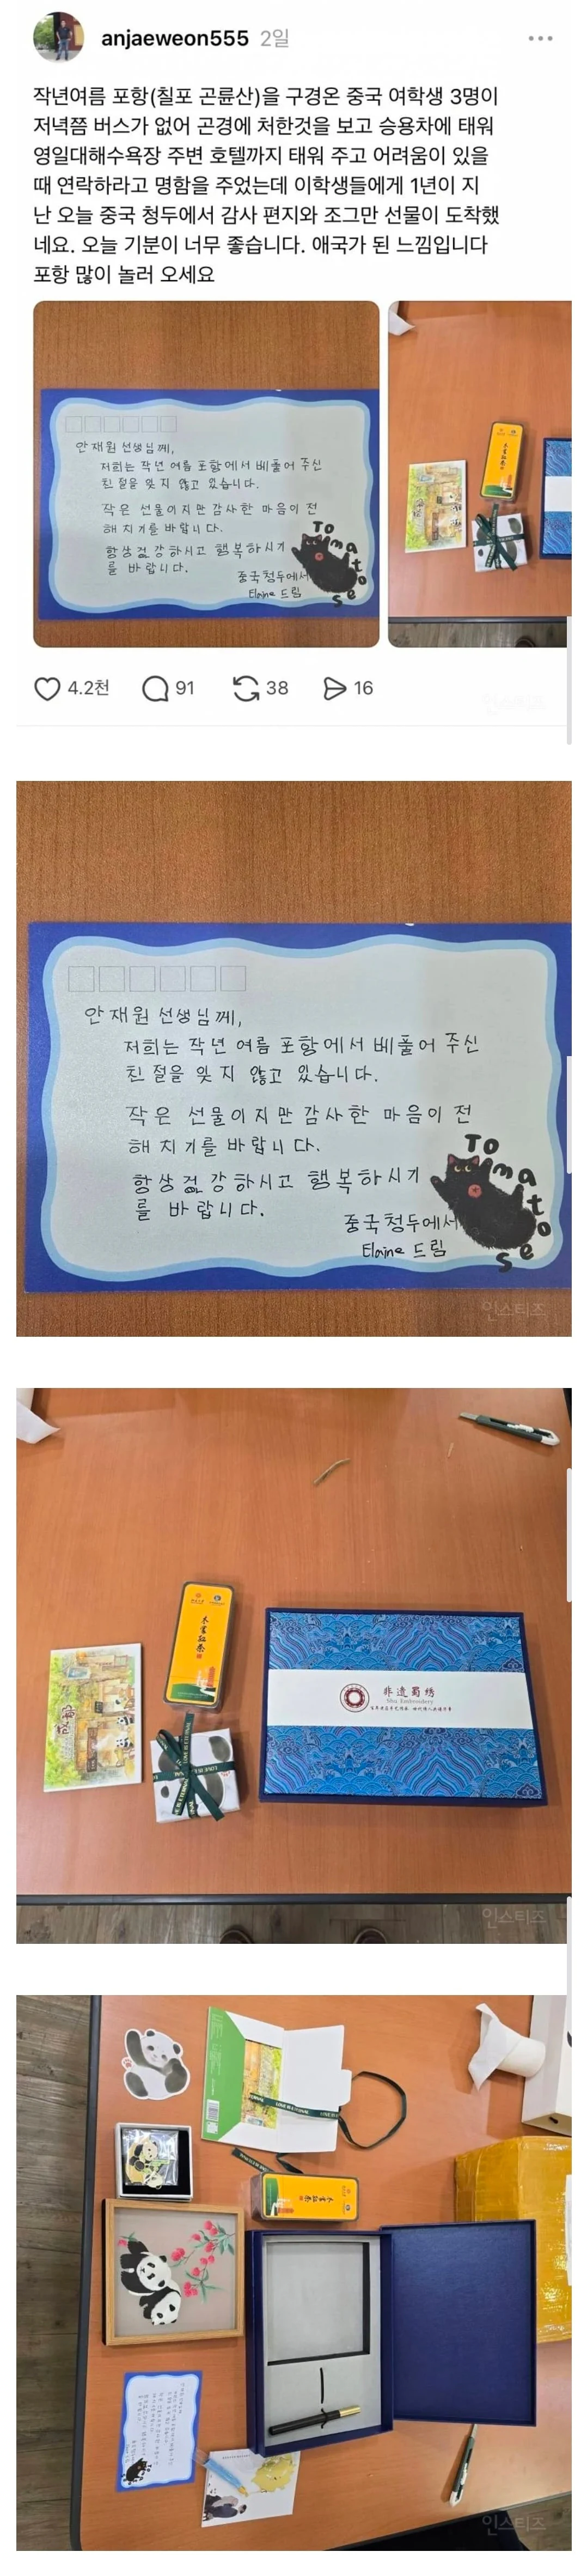 anjaeweon555 2일
작년여름 포항(칠포 곤륜산)을 구경온 중국 여학생 3명이
저녁쯤 버스가 없어 곤경에 처한것을 보고 승용차에 태워
영일대해수욕장 주변 호텔까지 태워 주고 어려움이 있을
때 연락하라고 명함을 주었는데 이학생들에게 1년이 지
난 오늘 중국 청두에서 감사 편지와 조그만 선물이 도착했
네요. 오늘 기분이 너무 좋습니다. 애국가 된 느낌입니다
포항 많이 놀러 오세요
안재원 선생님께,
저희는 작년 여름 포항에서 베풀어 주신
친절을 잊지 않고 있습니다.
작은 선물이지만 감사한 마음이 전
해 치기를 바랍니다.
항상 건강하시고 행복하시기
를 바랍니다.
중국청두에서
Elaine 드림
Tomatoes
4.2천 91 38 16
인스티즈
안재원 선생님께,
저희는 작년 여름 포항에서 베풀어 주신
친절을 잊지 않고 있습니다.
작은 선물이지만 감사한 마음이 전
해 치기를 바랍니다.
항상 건강하시고 행복하시기
를 바랍니다.
중국청두에서
Elaine 드림
Tomatoes
인스티즈
非遗蜀绣
Shu Embroidery
LOVE IS ETERNAL
인스티즈
LOVE IS ETERNAL
인스티즈